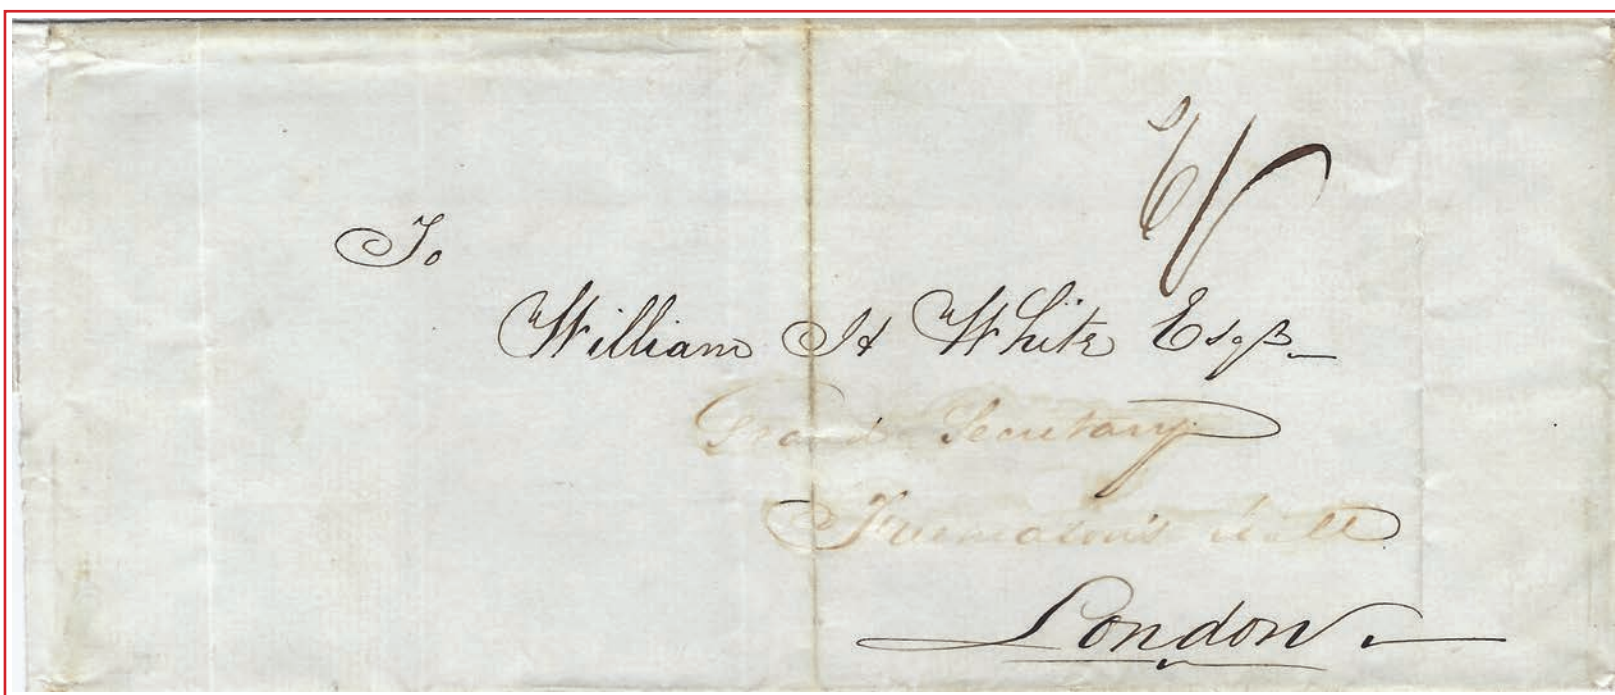 6/
To
William H White Esqr.
Grand Secretary
Freemason's Hall
London.